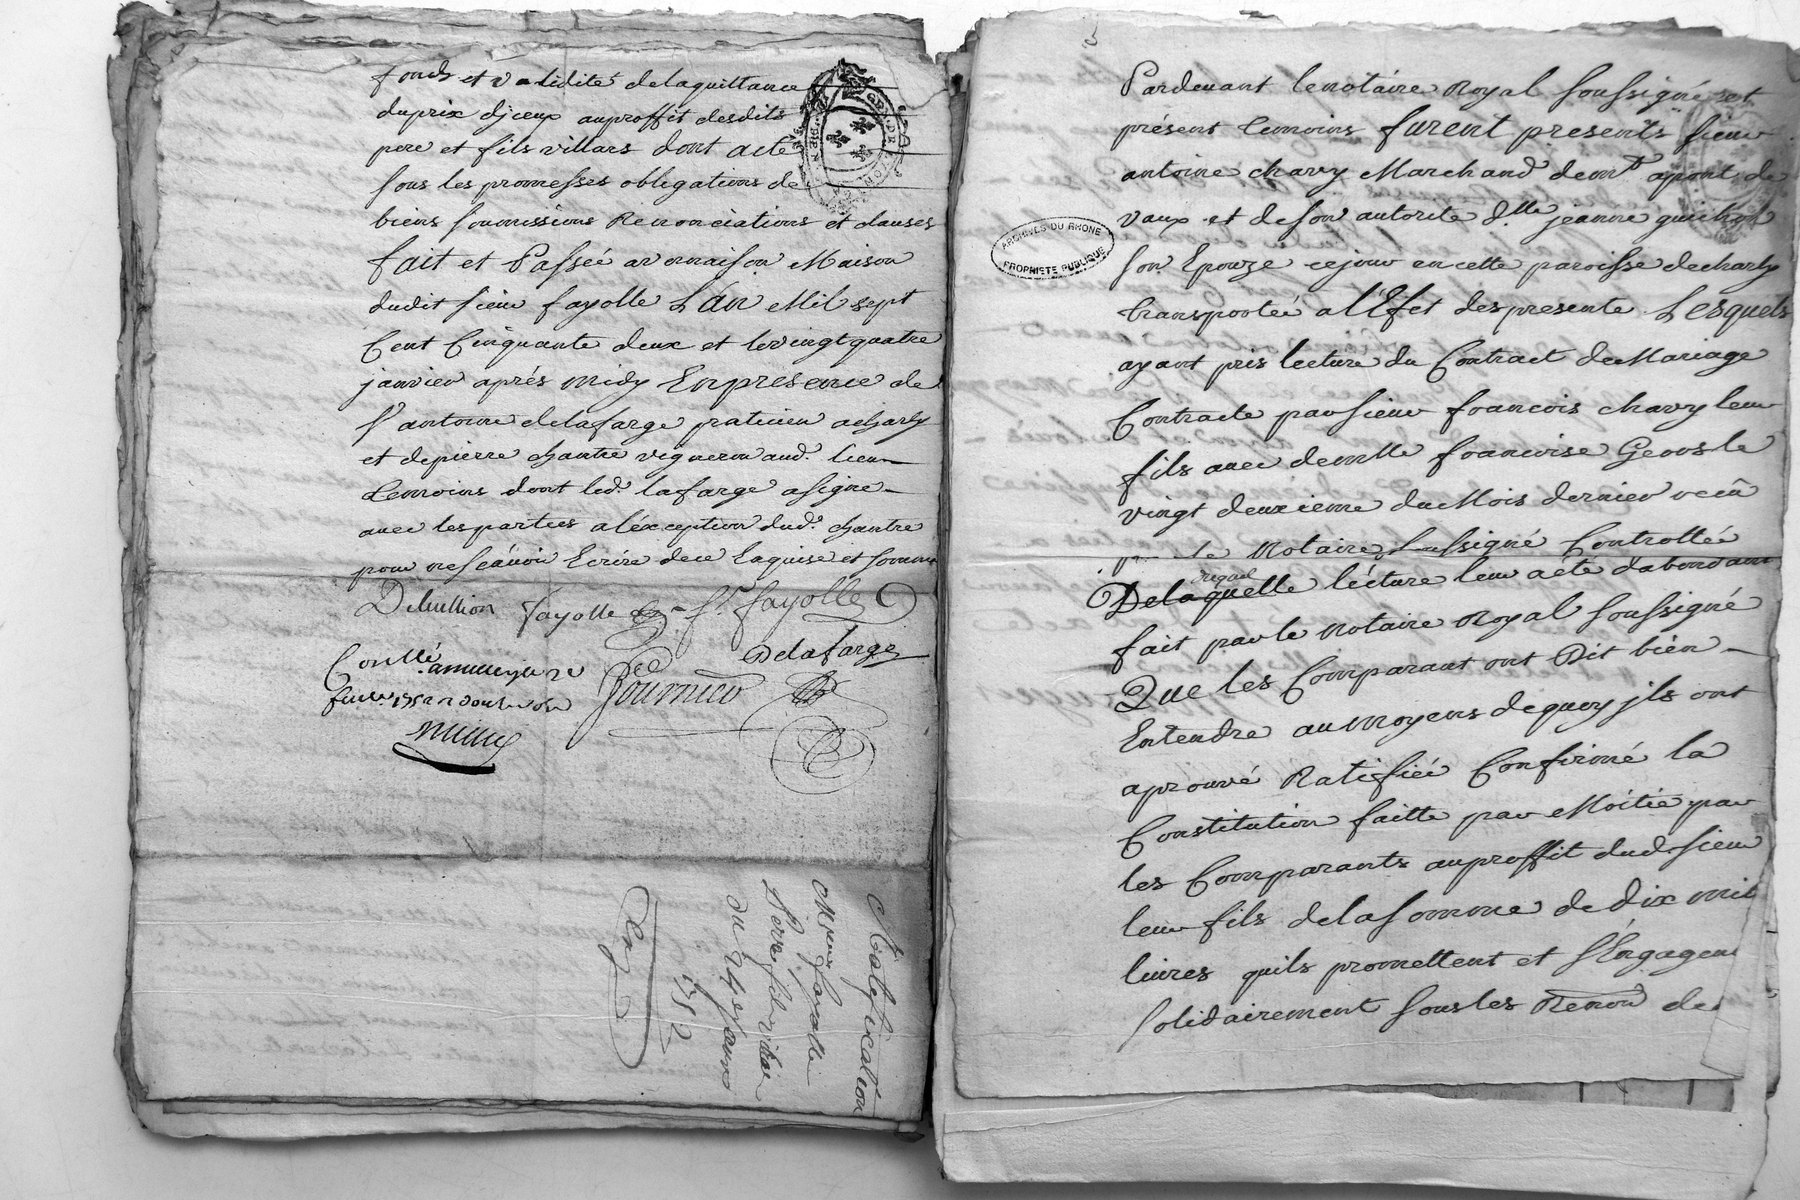 fonds et validité delaquittance
duprix diceux auproffit desdits
pere et fils villars dont acte
sous les promesses obligations de
biens soumissions Renonciations et clauses
fait et Passée a vernaison Maison
dudit sieur fayolle L'an Mil sept
Cent Cinquante deux et levingt quatre
janvier aprés midy Enpresence de
sr antoine delafarge praticien acharly
et depierre chantre vigneron aud. lieu
temoins dont led. lafarge asigné
avec lesparties aléxception dud. chantre
pour nesçavoir Ecrire dece Enquise et sommé
Debullion fayolle fayolle
Delafarge
Conllé
fournier
Ratification
Sieur fayolle
Pierre
du 24e janvier
1752
ARCHIVES DU RHONE
PROPRIETE PUBLIQUE
GEN DE LYON
Pardevant lenotaire Royal soussigné et
présent temoins furent presents sieur
antoine chavy Marchand demt apont de
vaux et deson autorité dlle jeanne guichon
son Epouze cejour encette paroisse decharly
transportée al'Efet despresente Lesquels
ayant pris lecture du Contract deMariage
Contracte parsieur francois chavy leur
fils avec demlle francoise
vingt deuxieme duMois dernier recû
le Notaire soussigné Controllée
Delaquelle lécture leur aété dabondant
fait parle Notaire Royal soussigné
Que les Comparant ont Dit bien
Entendre aumoyens dequoy jls ont
aprouvé Ratiffiée Confirmé la
Constitution faitte par Moitié par
les Comparants auproffit dud. sieur
leur fils delasomme de dix mil
livres quils promettent et s'Engagent
solidairement sousles Renon de